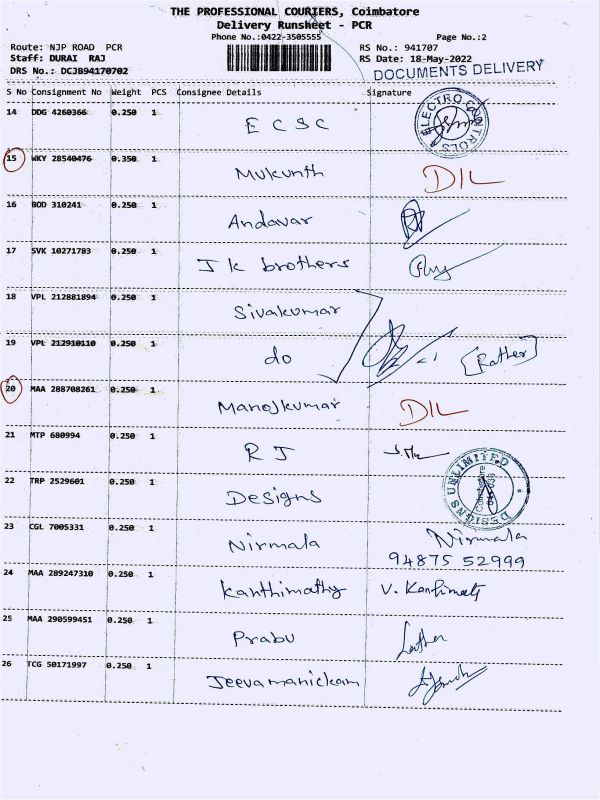 THE PROFESSIONAL COURIERS, Coimbatore
Delivery Runsheet - PCR
Phone No.:0422-3505555 Page No.:2
Route: NJP ROAD PCR RS No.: 941707
Staff: DURAI RAJ RS Date: 18-May-2022
DRS No.: DCJB94170702 DOCUMENTS DELIVERY
S No Consignment No Weight PCS Consignee Details Signature
14 DDG 4260366 0.250 1 E C S C ELECTRO CONTROLS
15 WKY 28540476 0.350 1 Mukunth DIL
16 BOD 310241 0.250 1 Andavar
17 SVK 10271783 0.250 1 J k brothers
18 VPL 212881894 0.250 1 Sivakumar
19 VPL 212910110 0.250 1 do [Rather]
20 MAA 288708261 0.250 1 Manojkumar DIL
21 MTP 680994 0.250 1 R J
22 TRP 2529601 0.250 1 Designs DESIGNS UNLIMITED
23 CGL 7005331 0.250 1 Nirmala Nirmala
94875 52999
24 MAA 289247310 0.250 1 Kanthimathy V. Kanthimathy
25 MAA 290599451 0.250 1 Prabu
26 TCG 50171997 0.250 1 Jeevamanickam